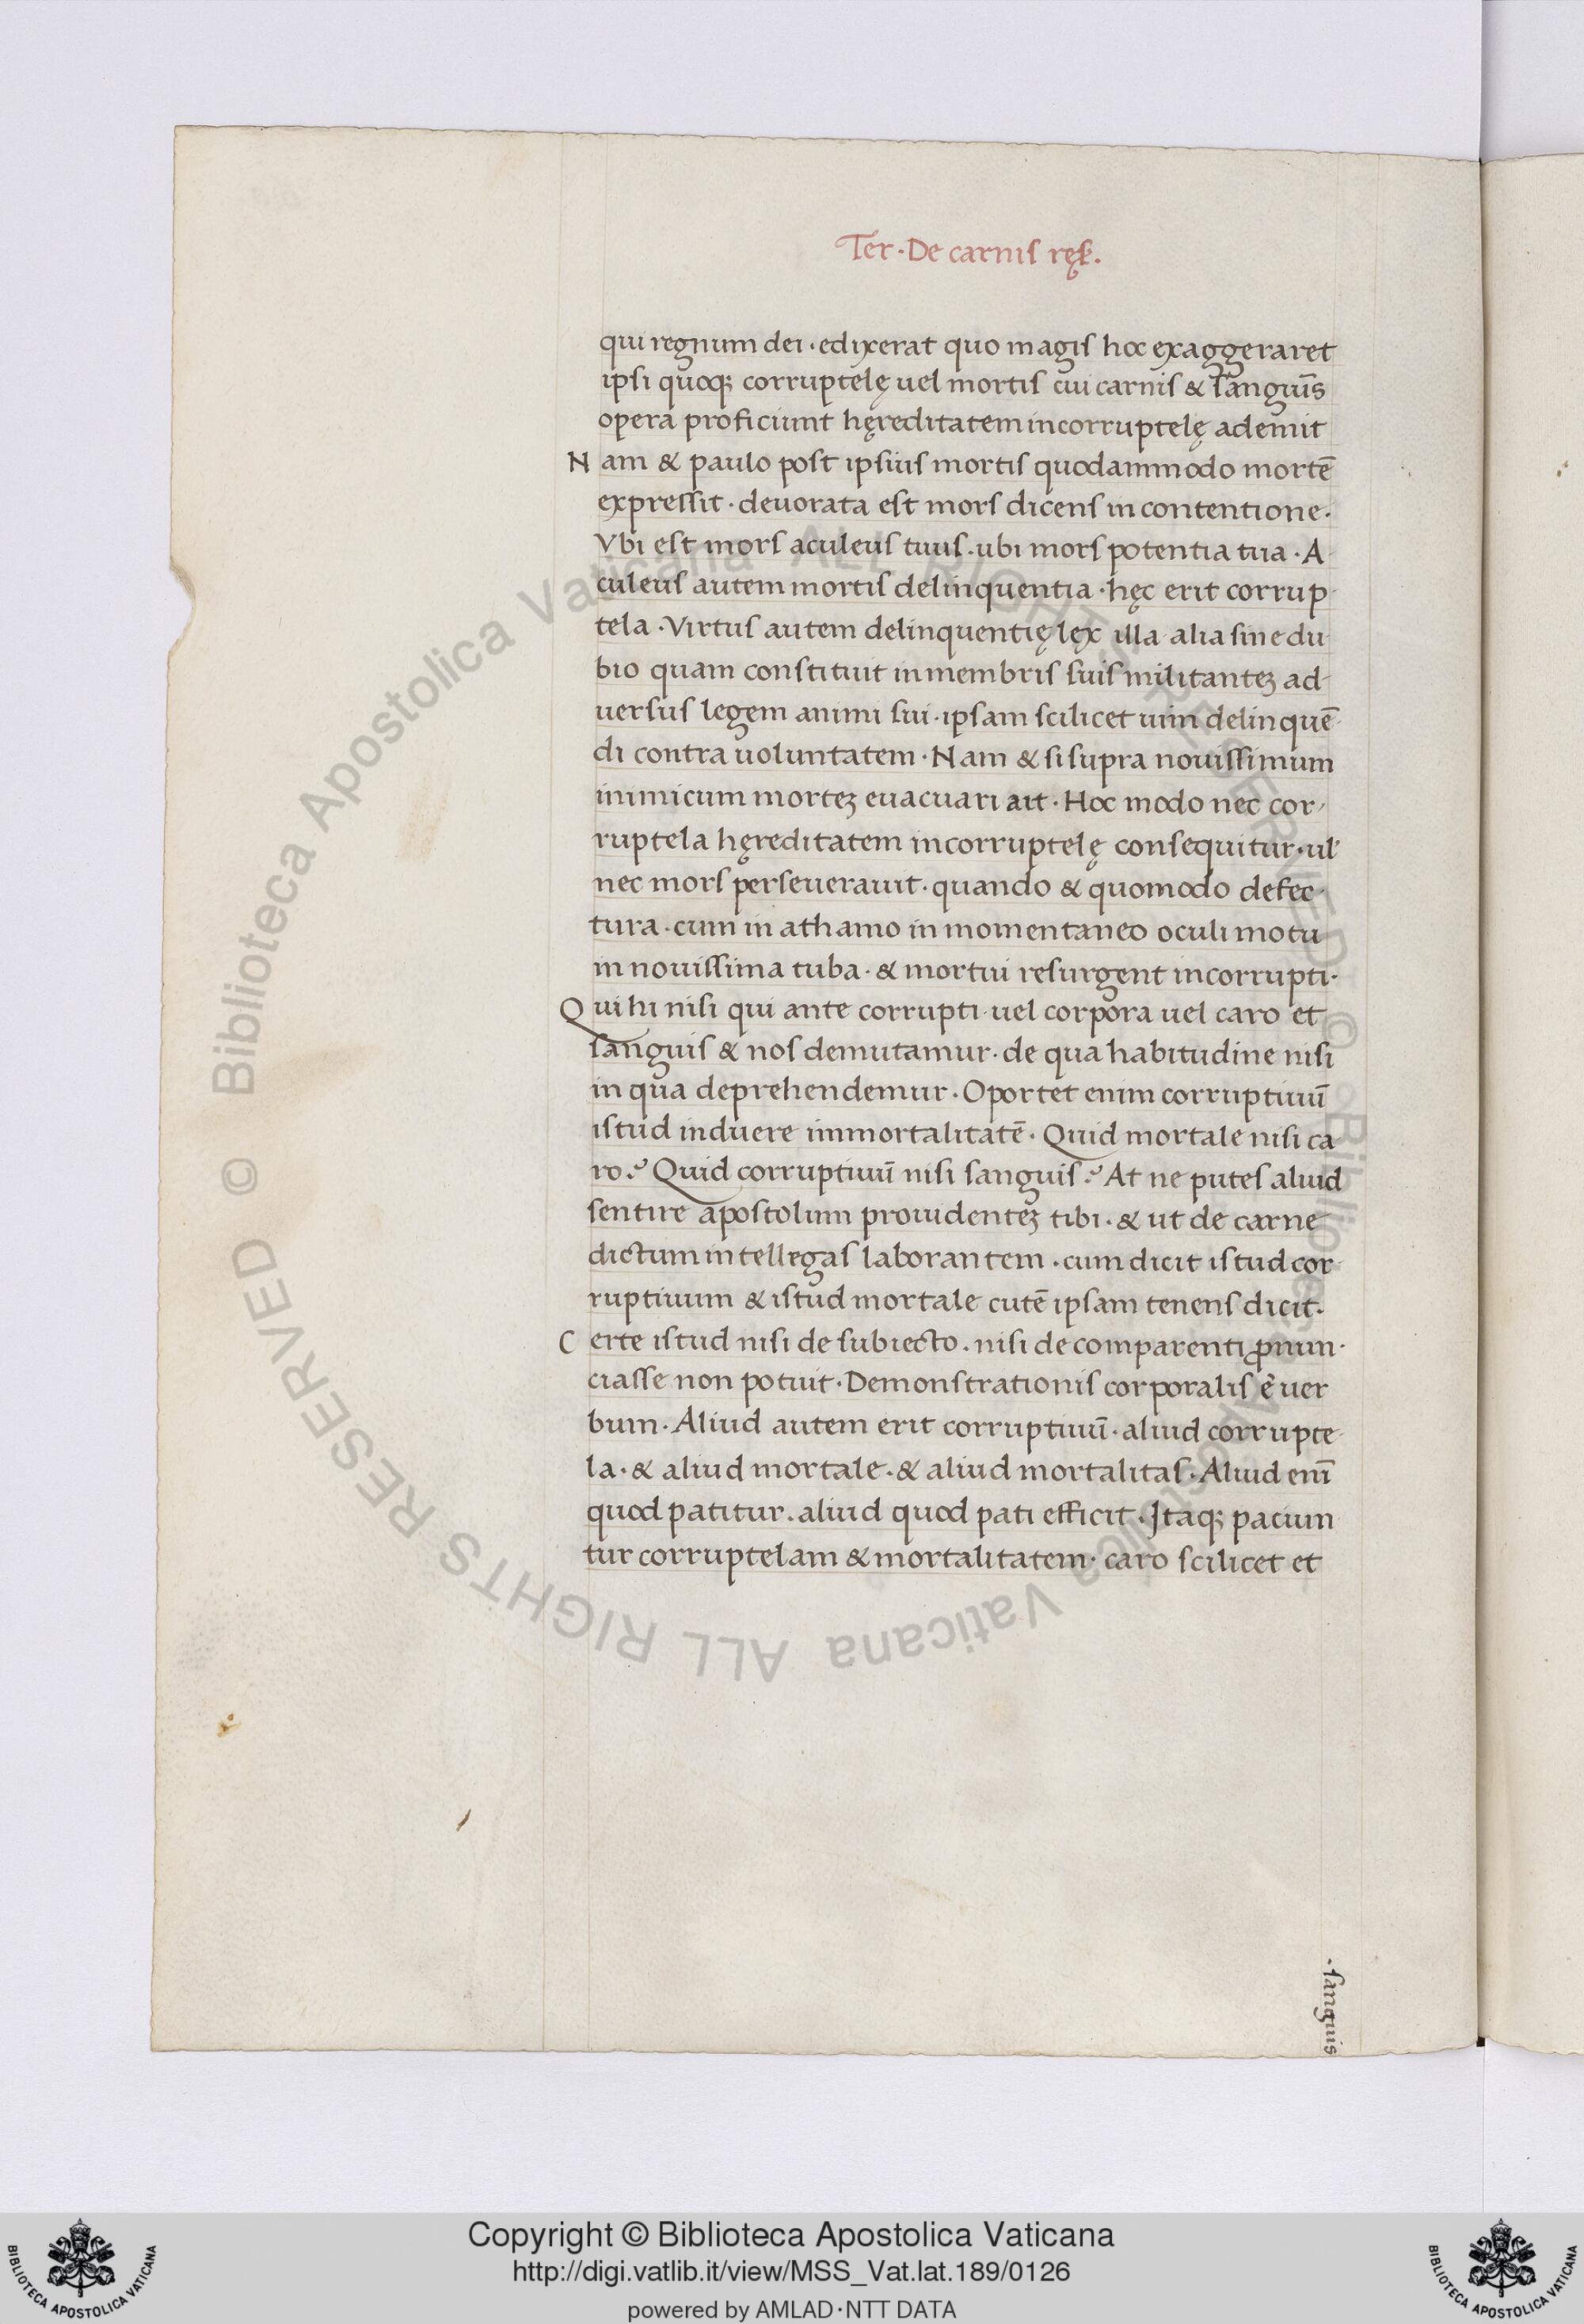 Ter · De carnis ręs.
qui regnum dei · edixerat quo magis hoc exaggeraret
ipsi quoqꝫ corruptelę uel mortis cui carnis & sanguīs
opera proficiunt hęreditatem incorruptelę ademit
Nam & paulo post ipsius mortis quodammodo mortē
expressit · deuorata est mors dicens in contentione ·
Vbi est mors aculeus tuus · ubi mors potentia tua · A
culeus autem mortis delinquentia · hęc erit corrup-
tela · Virtus autem delinquentię lex illa alia sine du
bio quam constituit in membris suis militanteꝫ ad-
uersus legem animi sui · ipsam scilicet uim delinquē
di contra uoluntatem · Nam & si supra nouissimum
inimicum morteꝫ euacuari ait · Hoc modo nec cor-
ruptela hęreditatem incorruptelę consequitur · ul'
nec mors perseuerauit · quando & quomodo defec-
tura · cum in athamo in momentaneo oculi motu
in nouissima tuba · & mortui resurgent incorrupti ·
Qui hi nisi qui ante corrupti · uel corpora uel caro et
sanguis & nos demutamur · de qua habitudine nisi
in qua deprehendemur · Oportet enim corruptiuū
istud induere immortalitatē · Quid mortale nisi ca
ro? Quid corruptiuū nisi sanguis? At ne putes aliud
sentire apostolum prouidenteꝫ tibi · & ut de carne
dictum intellegas laborantem · cum dicit istud cor
ruptiuum & istud mortale cutē ipsam tenens dicit.
Certe istud nisi de subiecto · nisi de comparenti ꝓnun-
ciasse non potuit · Demonstrationis corporalis ē uer
bum · Aliud autem erit corruptiuū · aliud corrupte
la · & aliud mortale · & aliud mortalitas · Aliud enī
quod patitur · aliud quod pati efficit · Itaqꝫ paciun
tur corruptelam & mortalitatem · caro scilicet et
· sanguis
© Biblioteca Apostolica Vaticana ALL RIGHTS RESERVED
© Biblioteca Apostolica Vaticana ALL RIGHTS RESERVED
Copyright © Biblioteca Apostolica Vaticana
http://digi.vatlib.it/view/MSS_Vat.lat.189/0126
powered by AMLAD·NTT DATA
BIBLIOTECA APOSTOLICA VATICANA
BIBLIOTECA APOSTOLICA VATICANA